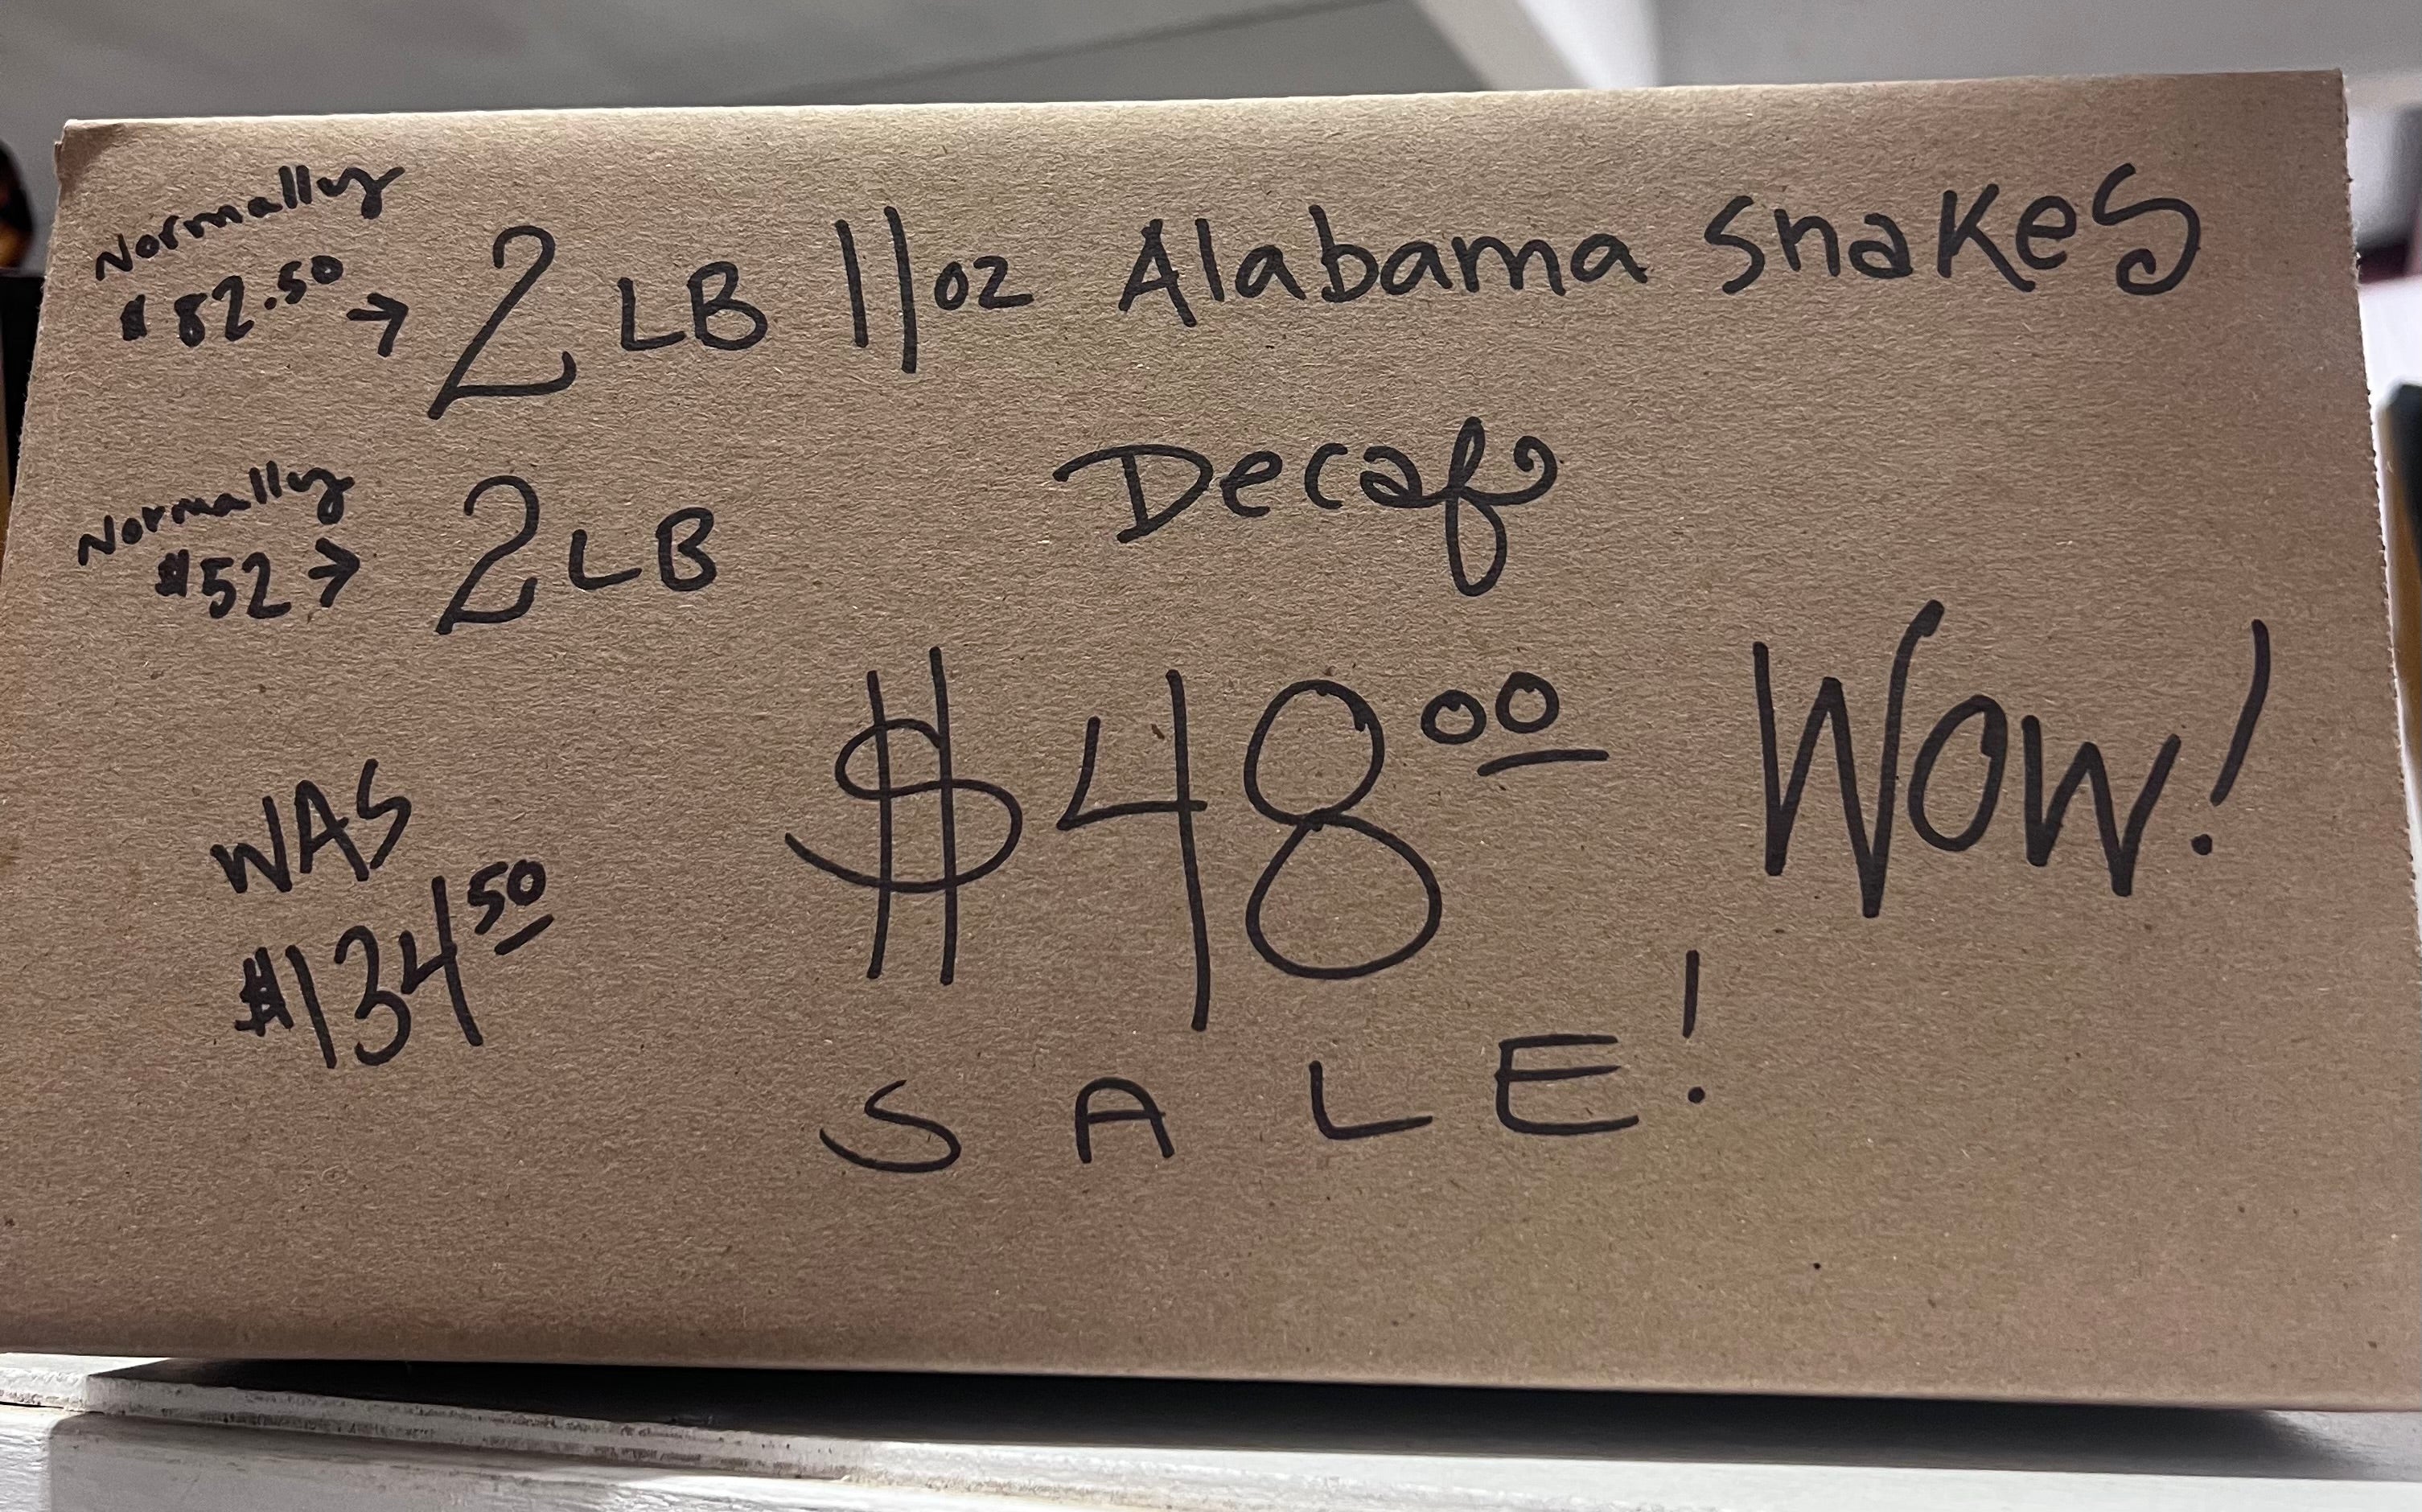 Normally
$82.50 → 2 LB 11oz Alabama Snakes
Normally
$52 → 2 LB Decaf
WAS
$134.50
$48.00 WOW!
SALE!